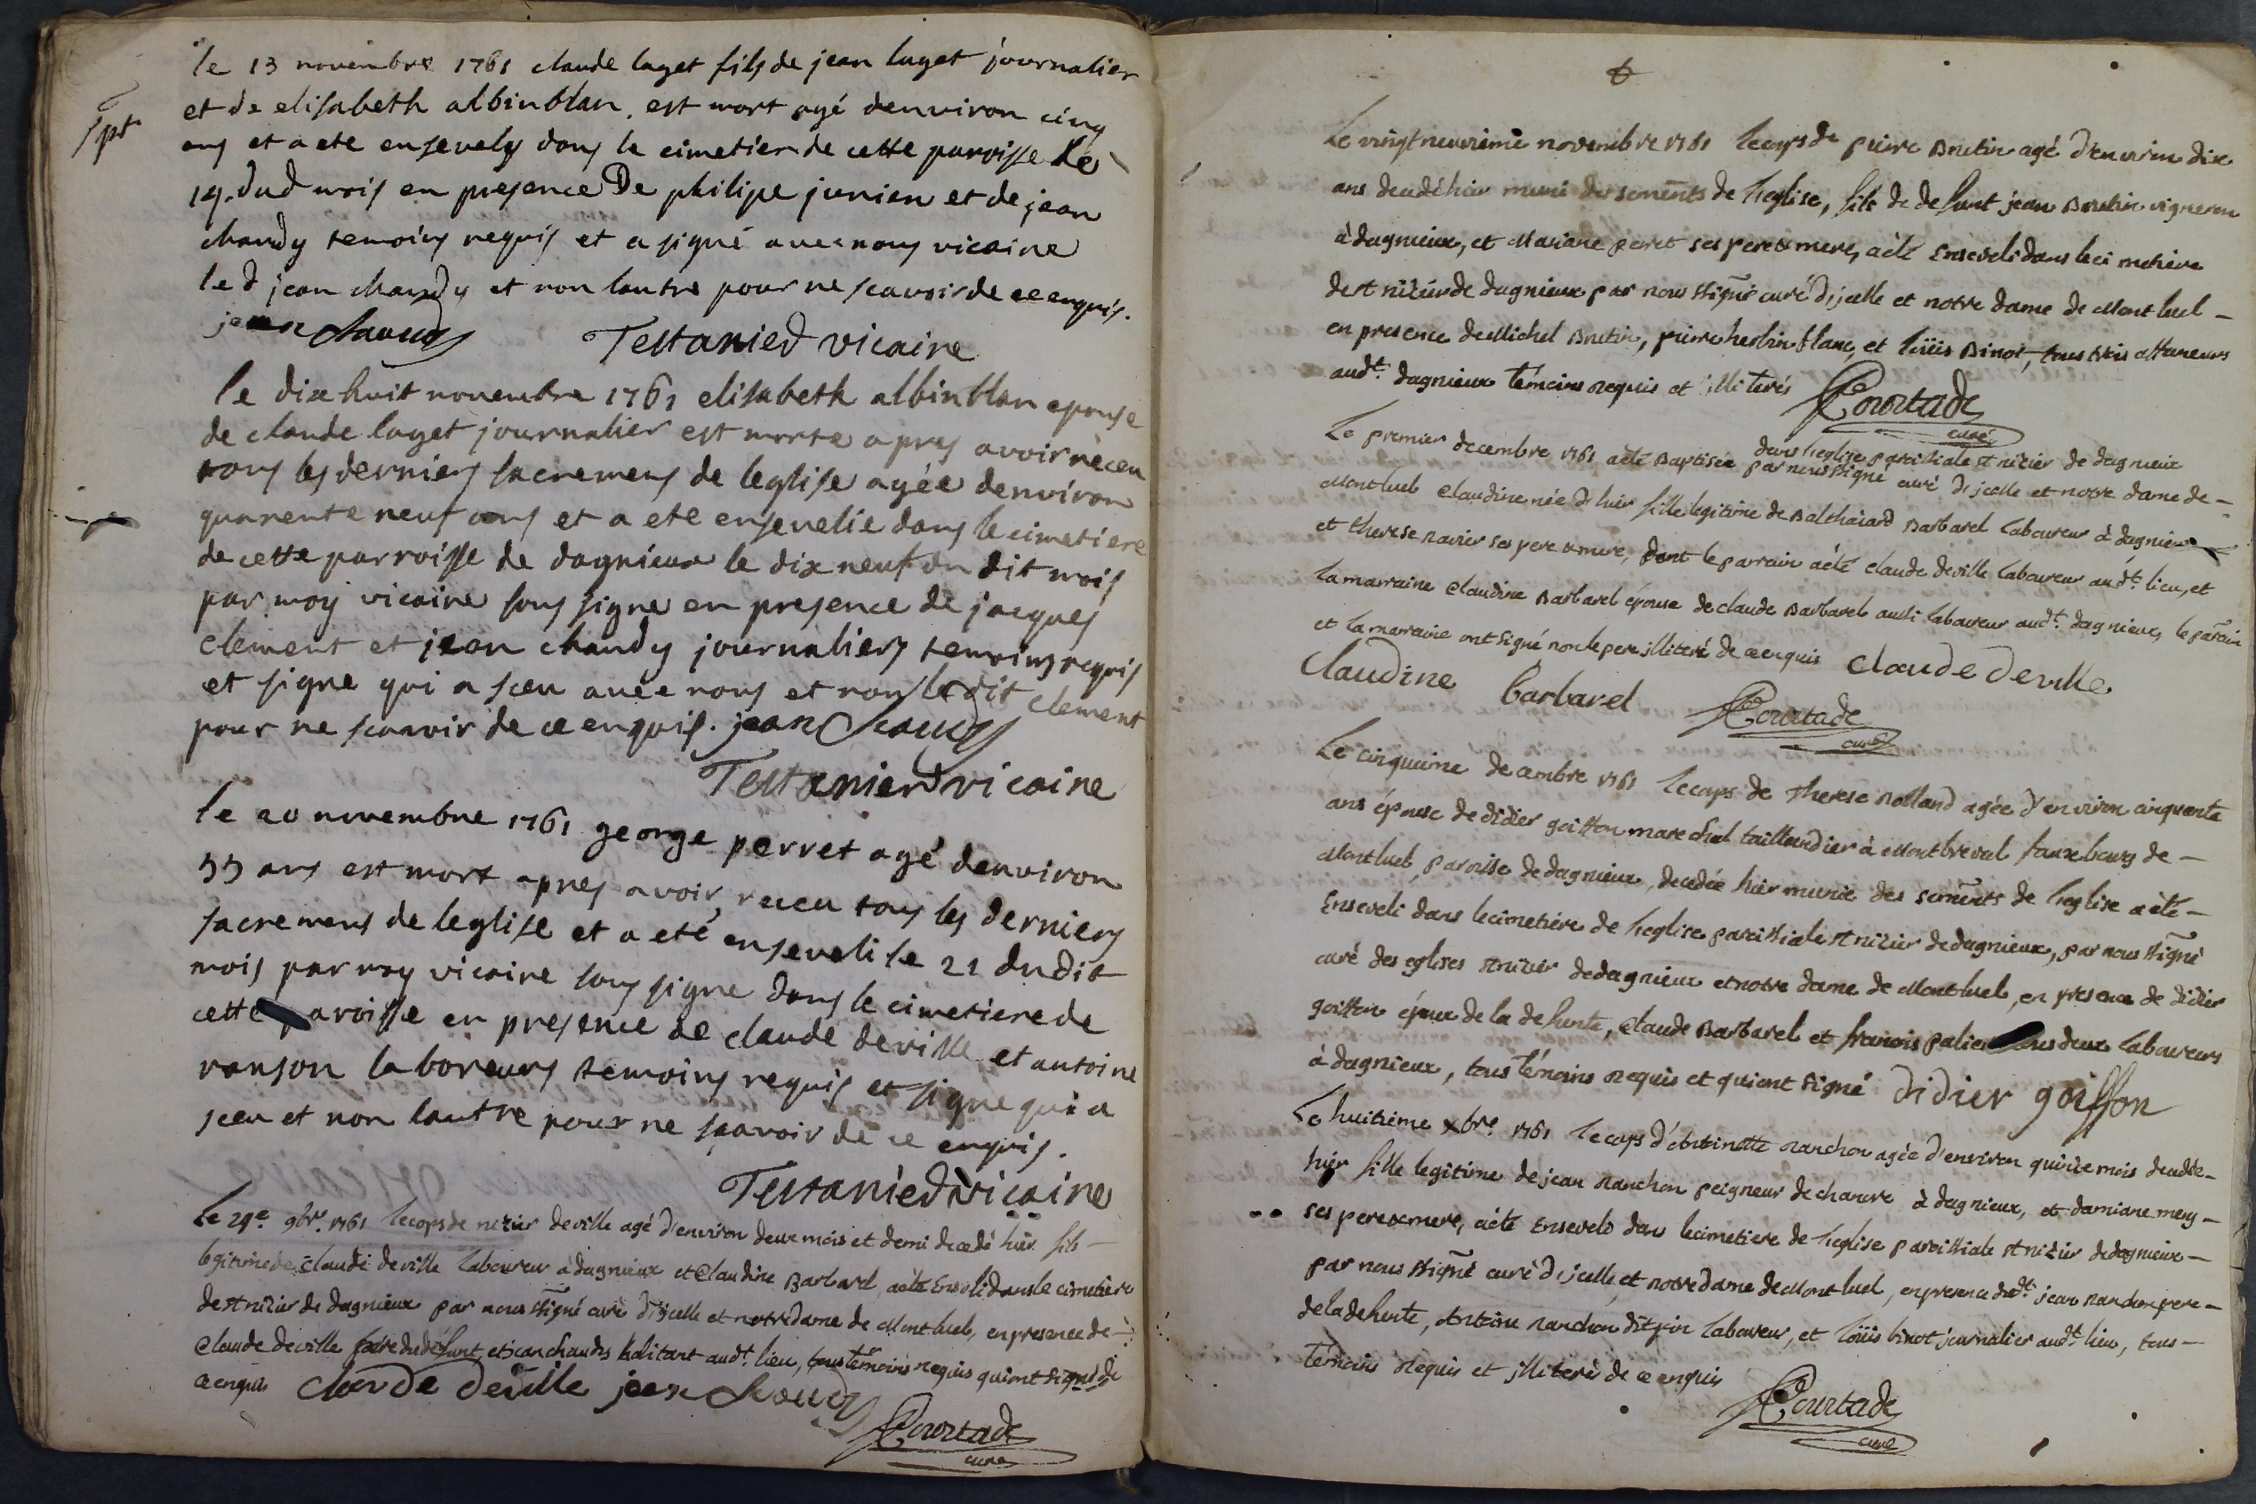 le 13 novembre 1761 claude laget fils de jean laget journalier
et de elisabeth albinblan. est mort agé denviron cinq
spt
ans et a ete ensevely dans le cimetier de cette paroisse le
14. dud mois en presence De philipe junien et de jean
chaudy temoins requis et a signé avec nous vicaire
led jean chaudy et non lautre pour ne scavoir de ce enquis.
jean chaudy Testanied vicaire
le dix huit novembre 1761 elisabeth albinblan epouse
de claude laget journalier est morte apres avoir receu
tous les derniers sacremens de leglise agée denviron
quarente neuf ans et a ete ensevelie dans le cimetiere
de cette parroisse de dagnieux le dix neuf du dit mois
par moy vicaire sous signe en presence de jacques
clement et jean chaudy journaliers temoins requis
et signe qui a sceu avec nous et non le dit clement
pour ne scavoir de ce enquis. jean Chaudy
Testanied vicaire
le 20 novembre 1761 george perret agé denviron
55 ans est mort apres avoir receu tous les derniers
sacremens de leglise et a eté enseveli le 21 du dit
mois par moy vicaire sous signe dans le cimetiere de
cette paroisse en presence de claude deville et antoine
ranson laboreurs temoins requis et signe qui a
sceu et non lautre pour ne scavoir de ce enquis.
Testanied vicaire
Le 29e 9bre. 1761 le corps de nizier deville agé d'environ deux mois et demi decedé hier fils –
legitime de claude deville Laboureur à dagnieux et Claudine Barbarel, a été Enseveli dans le cimetiere
de st nizier de dagnieux par nous ssigné curé d'jcelle et notre dame de Montluel, en presence de –
Claude deville pere du défunt, et jean chaudy habitant audt. lieu, tous témoins requis qui ont signé de
ce enquis claude deville jean Chaudy
Courtade
curé
Le vingt neuvieme novembre 1761 le corps de pierre Brutin agé d'environ dix
ans decedé hier muni des sements de l'eglise, fils de defunt jean Brutin vigneron
à dagnieux, et Mariane peret ses pere et mere, a été Enseveli dans le cimetiere
de st nizier de dagnieux par nous ssigné curé d'jcelle et notre dame de Montluel –
en presence de Michel Brutin, pierre herbin blanc, et loüis Binot, tous trois
audt. dagnieux témoins requis et illiterés Courtade
curé
Le premier decembre 1761 a été Baptisée dans l'eglise paroissiale st nizier de dagnieux
par nous ssigné curé d'jcelle et notre dame de –
Montluel Claudine née d'hier fille legitime de Balthazard Barbarel Laboureur à dagnieux
et therese navier ses pere et mere, dont le parrain a été claude deville Laboureur audt. lieu, et
la marraine Claudine Barbarel épouse de claude Barbarel aussi Laboureur audt. dagnieux, le parrain
et la marraine ont signé non le pere illiteré de ce enquis claude deville
Claudine barbarel Courtade
curé
Le cinquieme decembre 1761 le corps de therese Rolland agée d'environ cinquante
ans épouse de didier goiffon marechal taillandier à Montbreval fauxbourg de –
Montluel, paroisse de dagnieux, decedée hier munie des sements de l'eglise a été –
Enseveli dans le cimetiere de l'eglise paroissiale st nizier de dagnieux, par nous ssigné
curé des eglises st nizier de dagnieux et notre dame de Montluel, en presence de didier
goiffon époux de la defunte, Claude Barbarel et francois palier tous deux Laboureurs
à dagnieux, tous témoins requis et qui ont signé didier goiffon
Le huitieme xbre. 1761 le corps d'Antoinette ranchon agée d'environ quinze mois decedée
hier fille legitime de jean ranchon peigneur de chanvre à dagnieux, et damiane mery –
ses pere et mere, a été Ensevelo dans le cimetiere de l'eglise paroissiale st nizier de dagnieux –
par nous ssigné curé d'jcelle, et notre dame de Montluel, en presence dudt. jean ranchon pere –
de la defunte, Antoine ranchon dit pin Laboureur, et loüis binot journalier audt. lieu, tous –
témoins requis et jlliteré de ce enquis
Courtade
curé